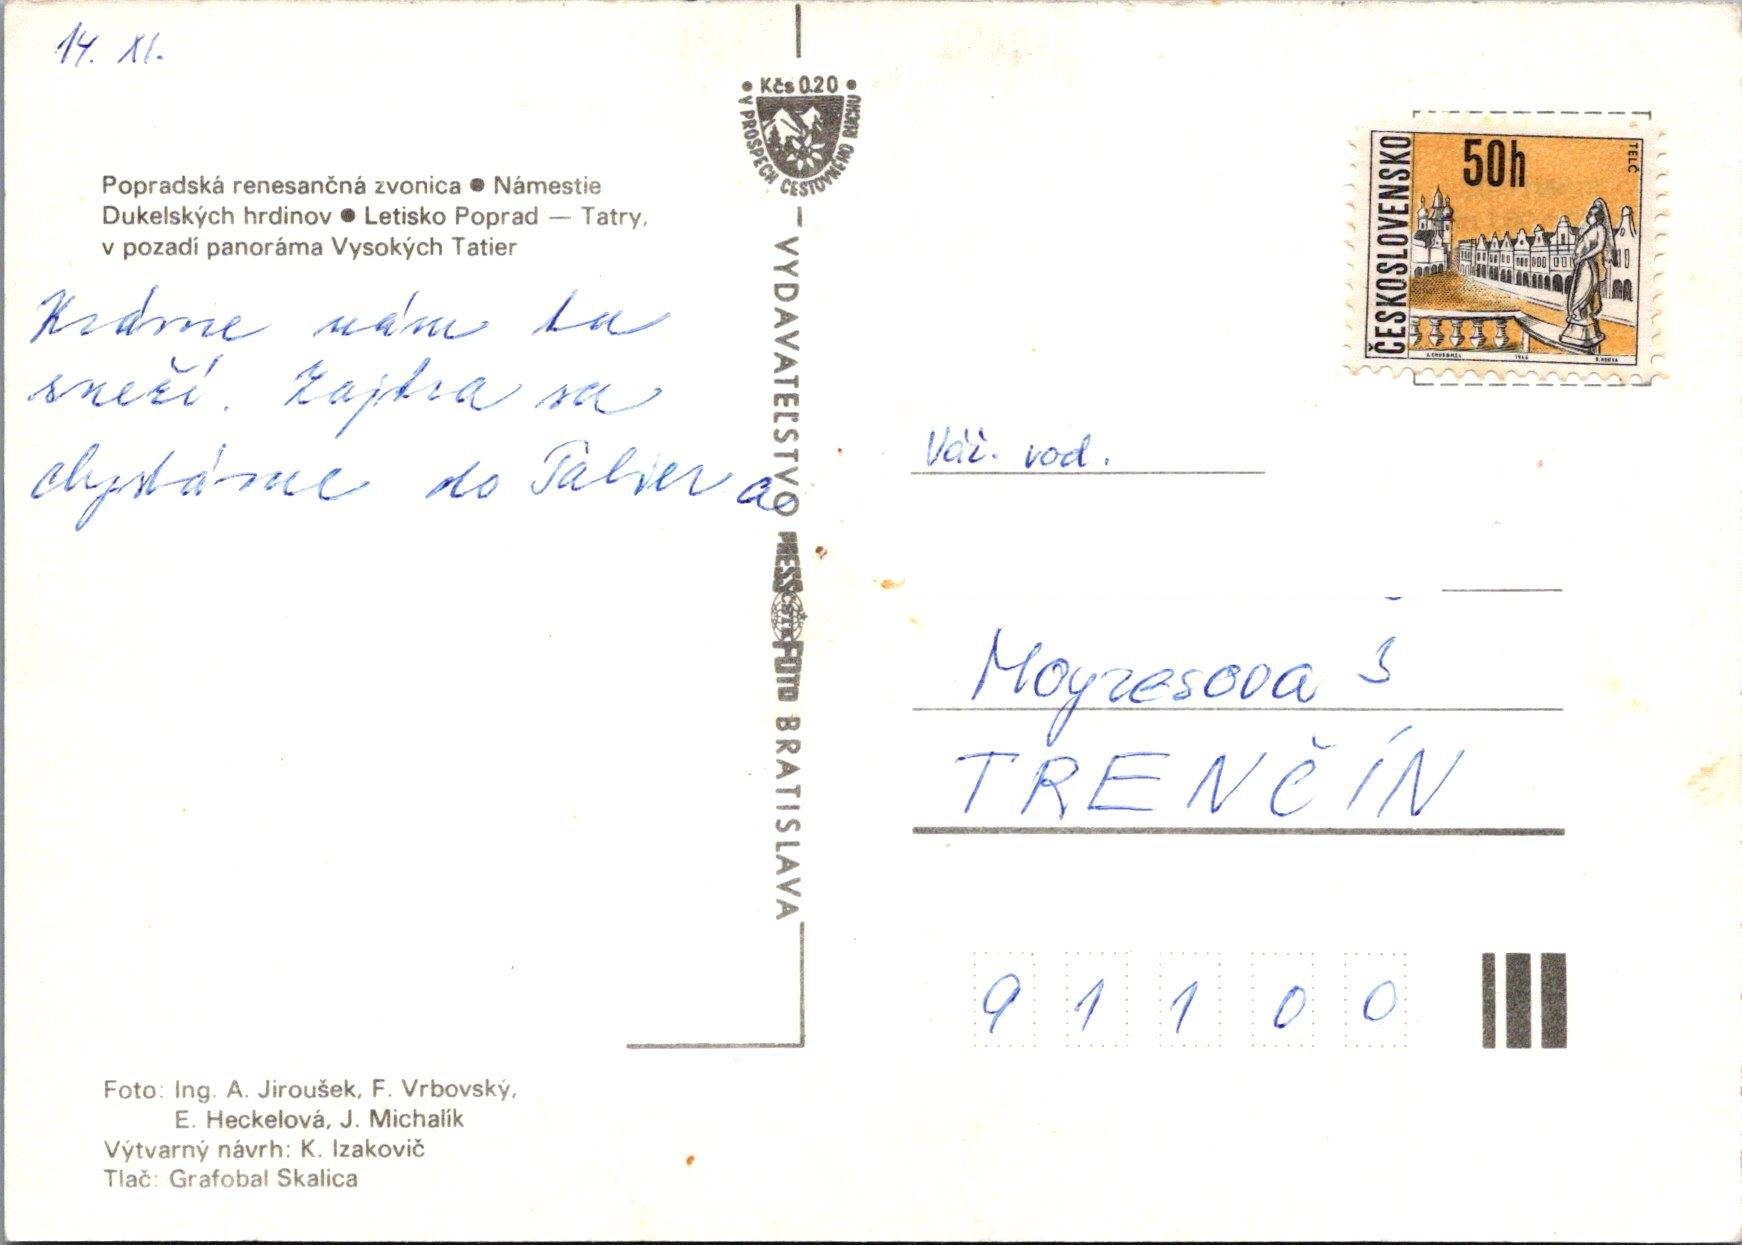 14. XI.
Kčs 0.20
V PROSPECH CESTOVNÉHO RUCHU
Popradská renesančná zvonica ● Námestie
Dukelských hrdinov ● Letisko Poprad — Tatry,
v pozadí panoráma Vysokých Tatier
Krásne nám tu
sneží. Zajtra sa
chystáme do Tatier a
VYDAVATEĽSTVO PRESSFOTO BRATISLAVA
ČSTK
ČESKOSLOVENSKO
50h
TELČ
1966
Váž. rod.
Moyzesova 3
TRENČÍN
91100
Foto: Ing. A. Jiroušek, F. Vrbovský,
E. Heckelová, J. Michalík
Výtvarný návrh: K. Izakovič
Tlač: Grafobal Skalica